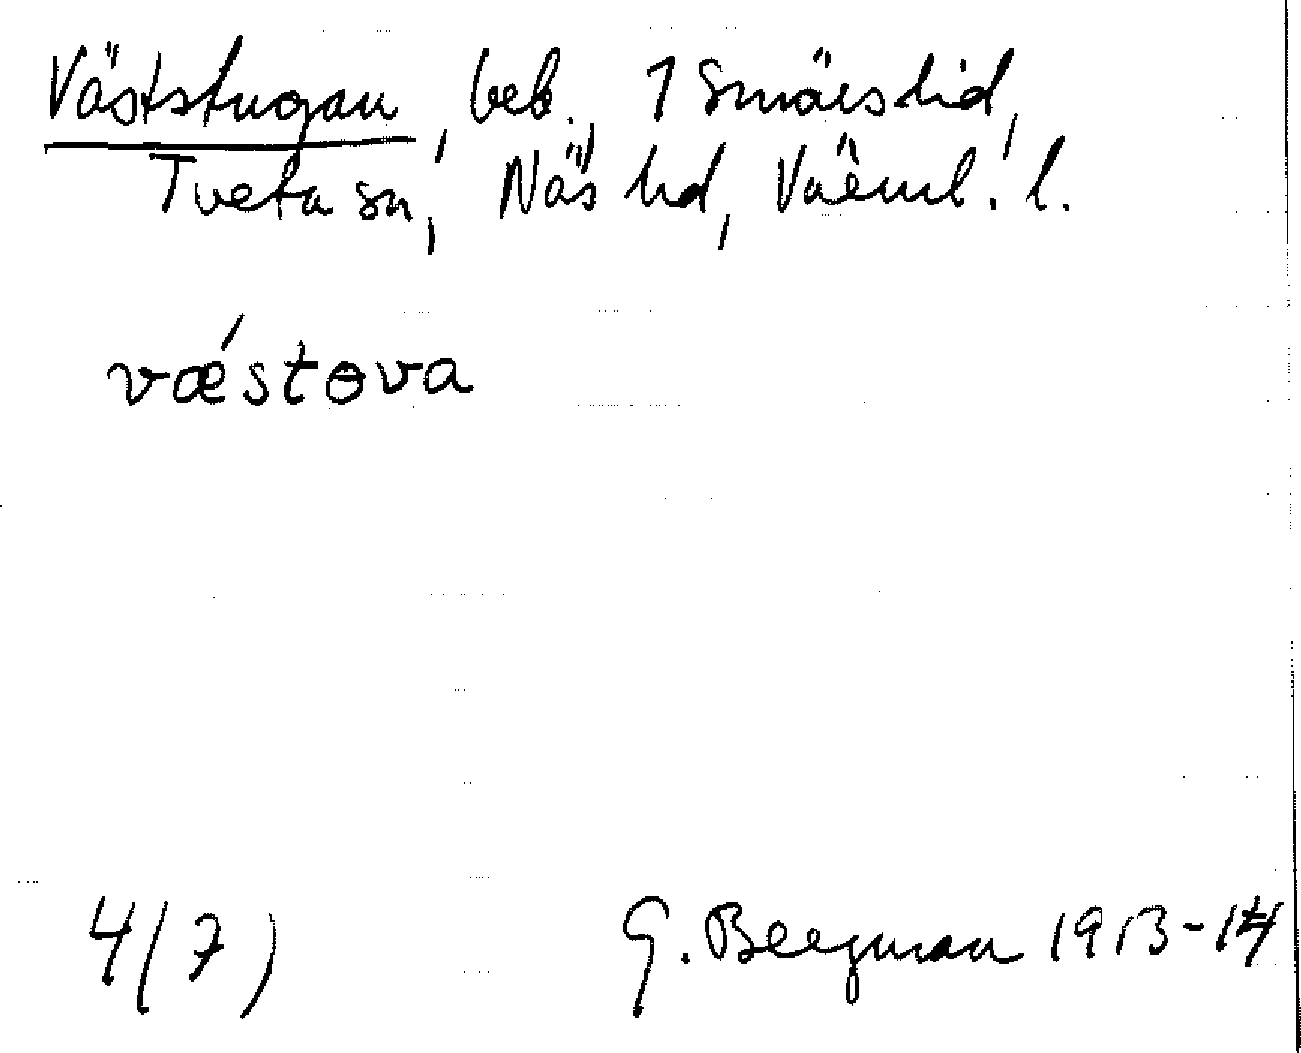 Väststugan, beb., 1 Smärslid,
Tveta sn, Näs hd, Värml. l.
væ´stɵva
4(7)
G. Bergman 1913-14